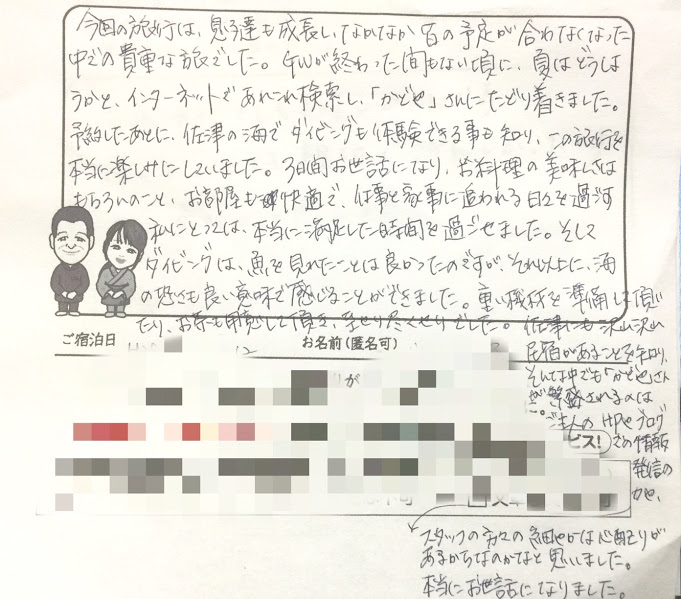 今回の旅行は、息子達も成長し、なかなか皆の予定が合わなくなった
中での貴重な旅でした。GWが終わった間もない頃に、夏はどうしよ
うかと、インターネットであれこれ検索し、「かどや」さんにたどり着きました。
予約したあとに、佐津の海でダイビングも体験できる事も知り、この旅行を
本当に楽しみにしていました。3日間お世話になり、お料理の美味しさは
もちろんのこと、お部屋も快適で、仕事と家事に追われる日々を過す
私にとっては、本当に満足した時間を過ごせました。そして
ダイビングは、魚を見れたことは良かったのですが、それ以上に、海
の恐さも良い意味で感じることができました。重い機材を準備して頂い
たり、お茶も用意して頂き、至せり尽くせりでした。佐津にも沢山沢山
民宿があることを知り、
そんな中でも「かどや」さん
が繁盛されるのは
ご主人のHPやブログ
での情報
発信の
かや、
スタッフの方々の細やかな心配りが
あるからなのかなと思いました。
本当にお世話になりました。
ご宿泊日
お名前(匿名可)
が
ビス!